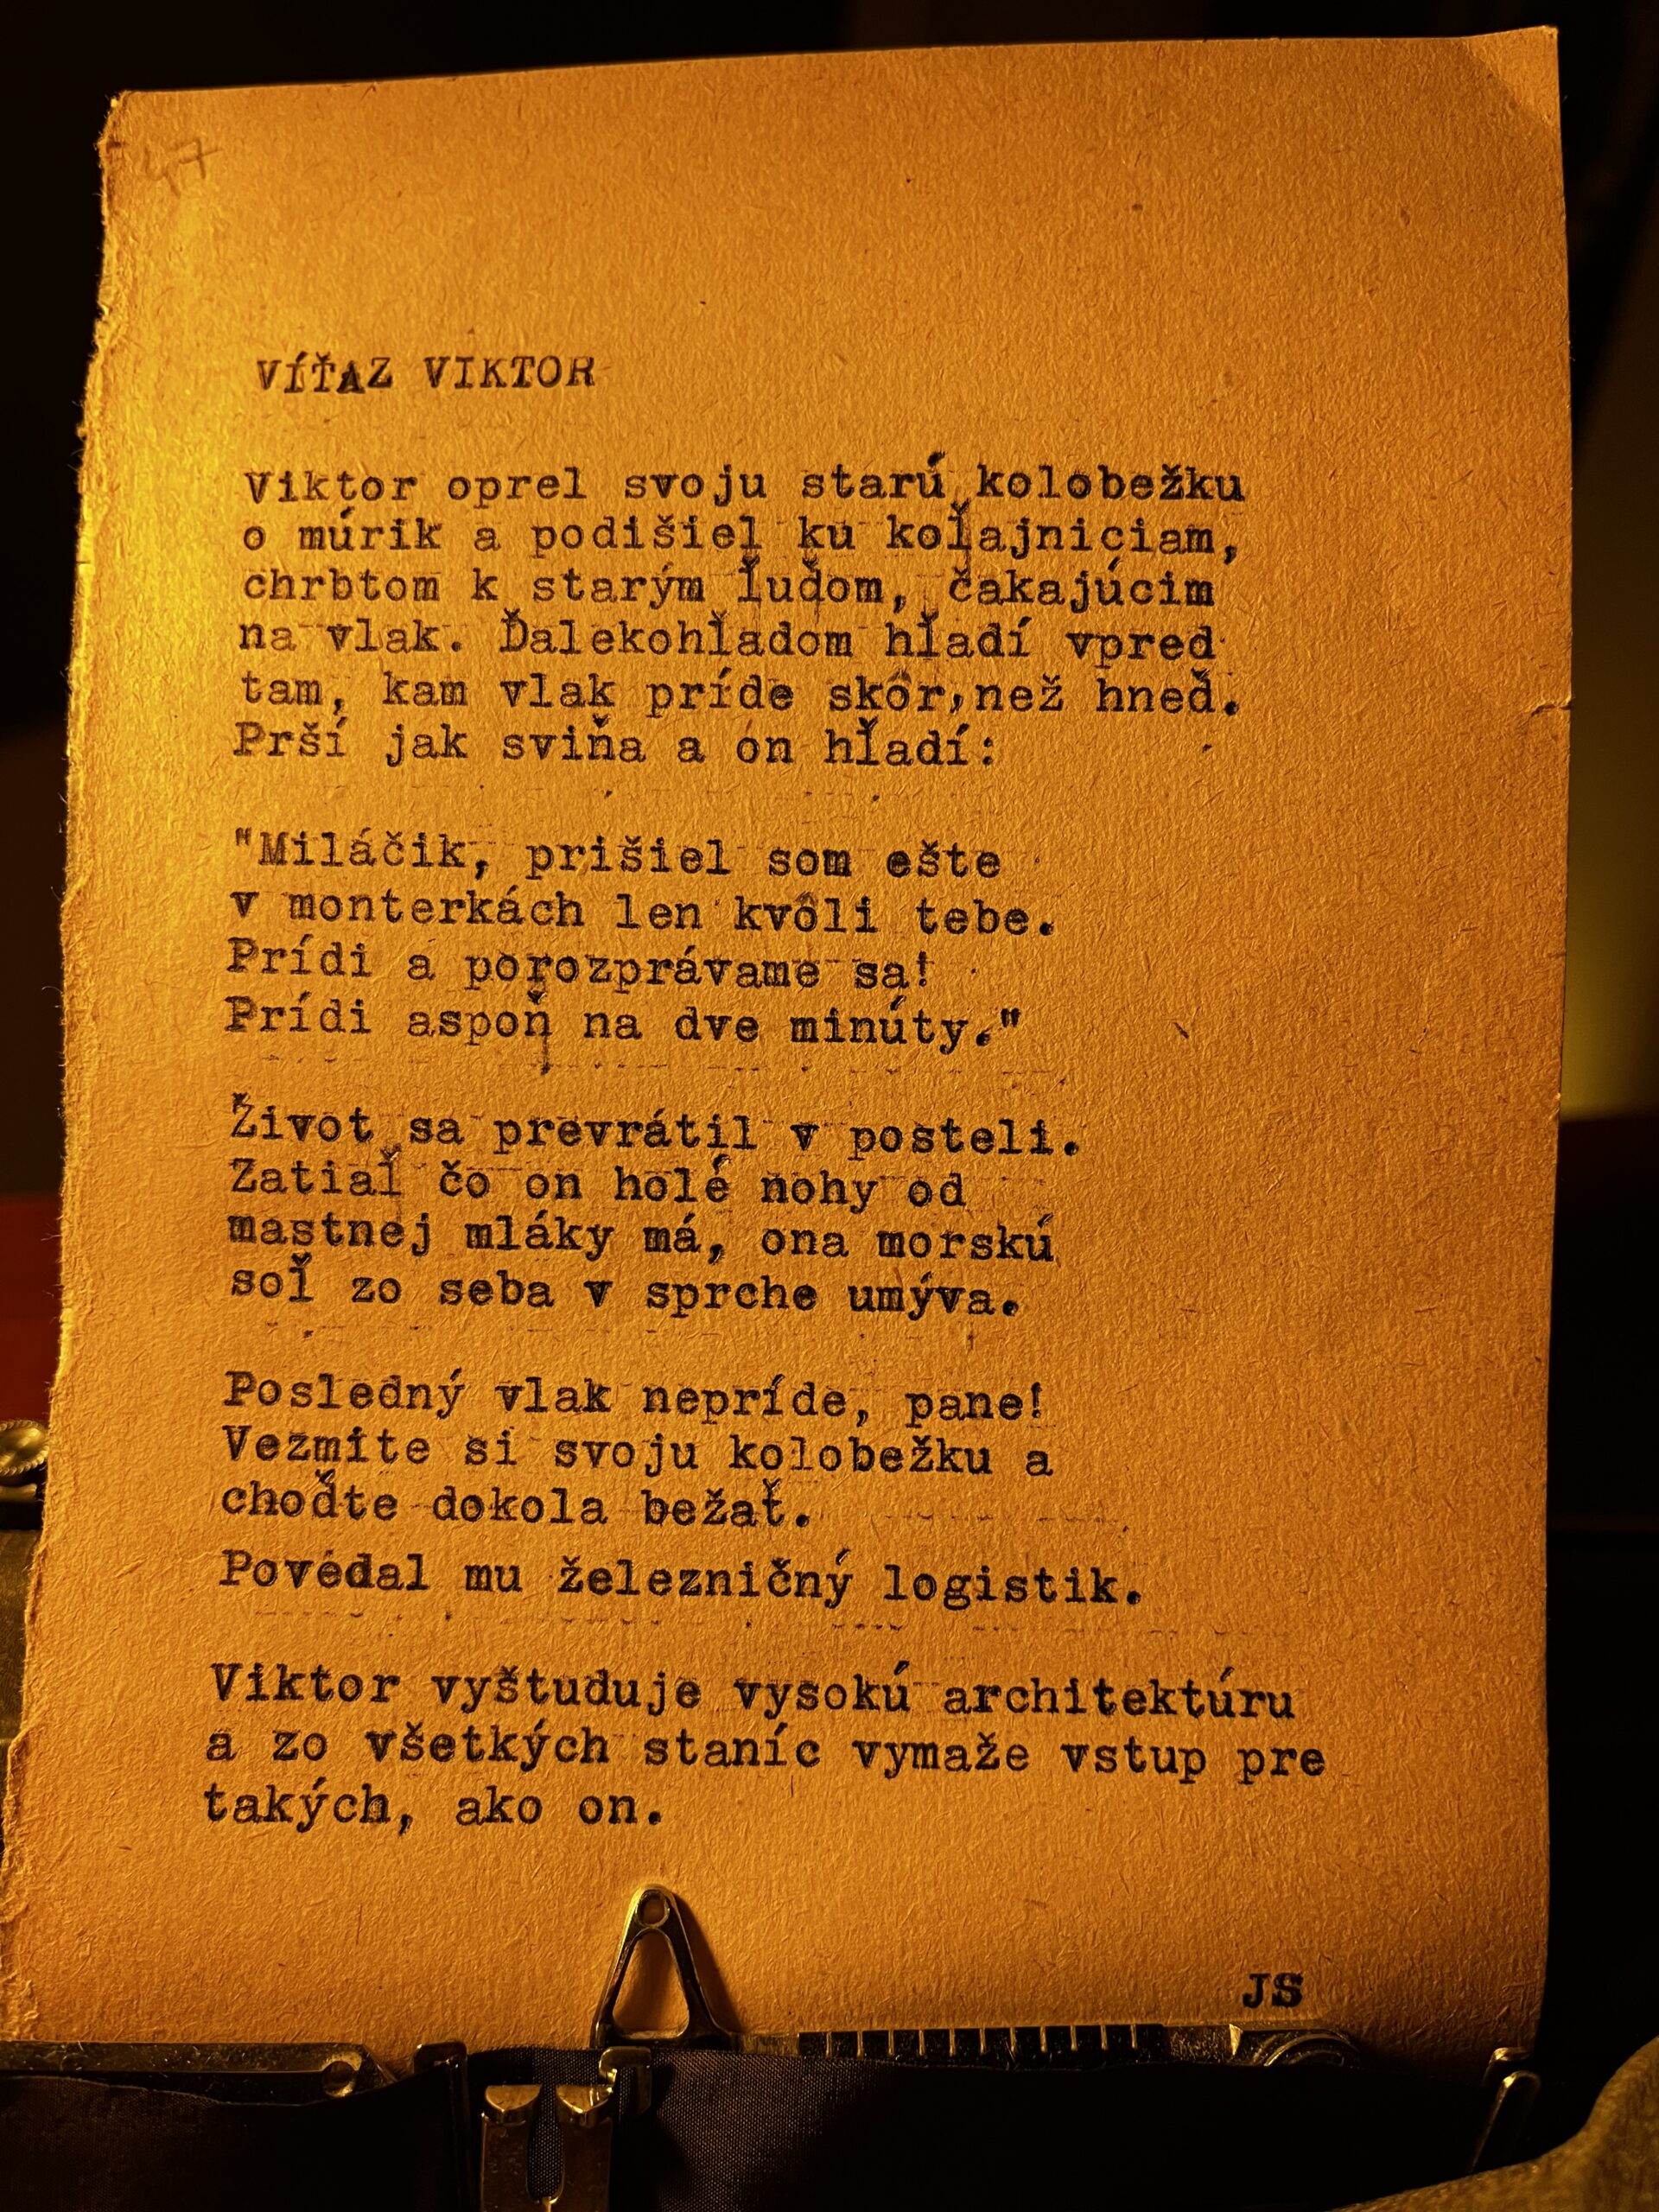 47
VÍŤAZ VIKTOR
Viktor oprel svoju starú kolobežku
o múrik a podišiel ku koľajniciam,
chrbtom k starým ľuďom, čakajúcim
na vlak. Ďalekohľadom hľadí vpred
tam, kam vlak príde skôr,než hneď.
Prší jak sviňa a on hľadí:
"Miláčik, prišiel som ešte
v monterkách len kvôli tebe.
Prídi a porozprávame sa!
Prídi aspoň na dve minúty."
Život sa prevrátil v posteli.
Zatiaľ čo on holé nohy od
mastnej mláky má, ona morskú
soľ zo seba v sprche umýva.
Posledný vlak nepríde, pane!
Vezmite si svoju kolobežku a
choďte dokola bežať.
Povedal mu železničný logistik.
Viktor vyštuduje vysokú architektúru
a zo všetkých staníc vymaže vstup pre
takých, ako on.
JS